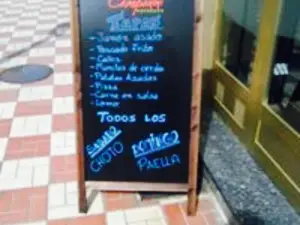 TAPAS
- Jamón asado
- Pescado Frito
- Callos
- Manitas de cerdo
- Patatas Asadas
- Pizza
- Carne en salsa
- Lomo
TODOS LOS
SABADO DOMINGO
CHOTO PAELLA